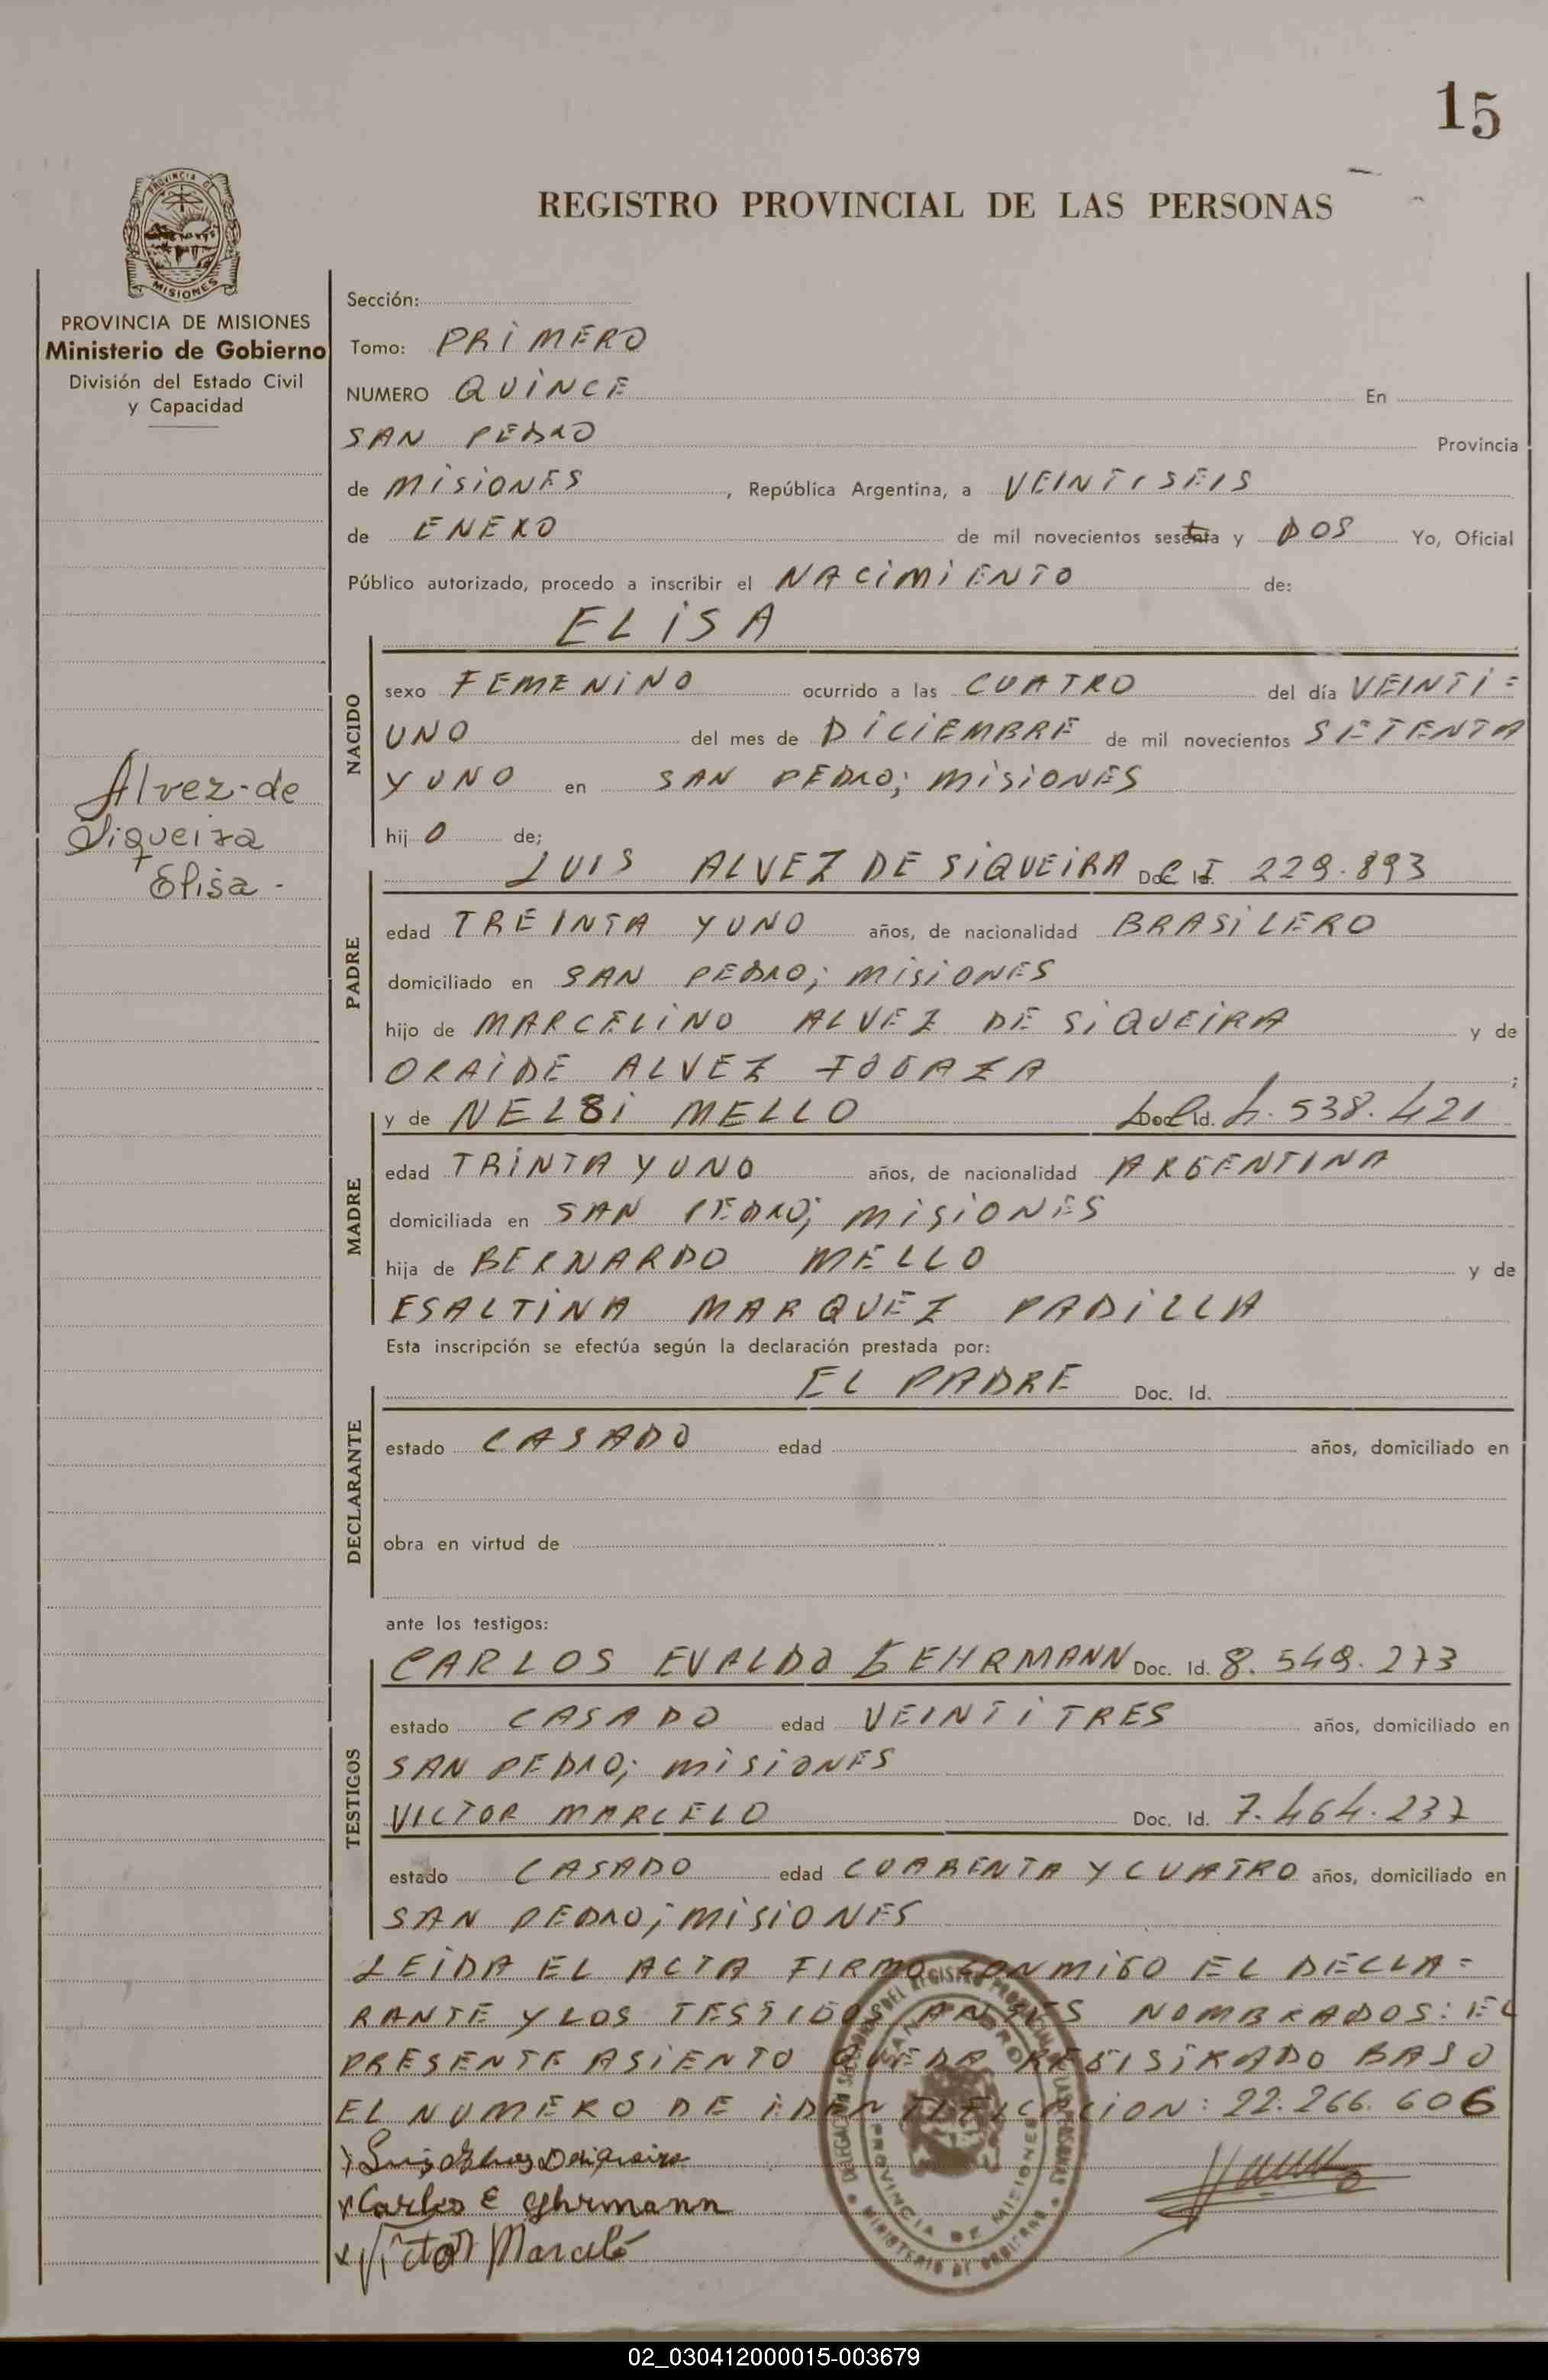 15
REGISTRO PROVINCIAL DE LAS PERSONAS
PROVINCIA DE MISIONES
Ministerio de Gobierno
División del Estado Civil
y Capacidad
Alvez de
Siqueira
Elisa -
Sección:
Tomo: PRIMERO
NUMERO QUINCE En
SAN PEDRO Provincia
de MISIONES, República Argentina, a VEINTISEIS
de ENERO de mil novecientos setenta y DOS Yo, Oficial
Público autorizado, procedo a inscribir el NACIMIENTO de:
ELISA
NACIDO
sexo FEMENINO ocurrido a las CUATRO del día VEINTI=
UNO del mes de DICIEMBRE de mil novecientos SETENTA
Y UNO en SAN PEDRO; MISIONES
hij O de;
LUIS ALVEZ DE SIQUEIRA Doc. Id. C I 229.893
PADRE
edad TREINTA Y UNO años, de nacionalidad BRASILERO
domiciliado en SAN PEDRO; MISIONES
hijo de MARCELINO ALVEZ DE SIQUEIRA y de
ORAIDE ALVEZ ;
y de NELSI MELLO Doc. Id. 4.538.421
MADRE
edad TRINTA Y UNO años, de nacionalidad ARGENTINA
domiciliada en SAN PEDRO; MISIONES
hija de BERNARDO MELLO y de
ESALTINA MARQUEZ PADILLA
Esta inscripción se efectúa según la declaración prestada por:
EL PADRE Doc. Id.
DECLARANTE
estado CASADO edad años, domiciliado en
obra en virtud de
ante los testigos:
CARLOS EVALDO GEHRMANN Doc. Id. 8.549.273
TESTIGOS
estado CASADO edad VEINTITRES años, domiciliado en
SAN PEDRO; MISIONES
VICTOR MARCELO Doc. Id. 7.464.237
estado CASADO edad CUARENTA Y CUATRO años, domiciliado en
SAN PEDRO; MISIONES
LEIDA EL ACTA FIRMO CONMIGO EL DECLA=
RANTE Y LOS TESTIGOS ANTES NOMBRADOS: EL
PRESENTE ASIENTO QUEDA REGISTRADO BAJO
EL NUMERO DE IDENTIFICACION: 22.266.606
Carlos E Gehrmann
Victor Marcelo
SAN PEDRO
PROVINCIA DE MISIONES
MINISTERIO DE GOBIERNO
02_030412000015-003679